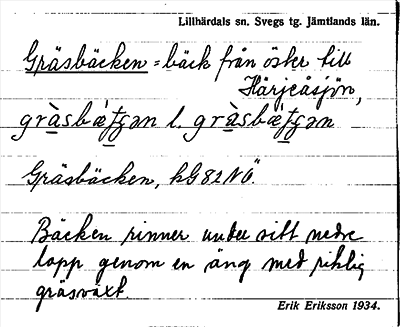 Lillhärdals sn. Svegs tg. Jämtlands län.
Gräsbäcken = bäck från öster till
Härjeåsjön,
gràsbæ̀ʃʒən l. gràsbæ̀ʃʒən
Gräsbäcken, kG 82 NÖ.
Bäcken rinner under sitt nedre
lopp genom en äng med riklig
gräsväxt.
Erik Eriksson 1934.